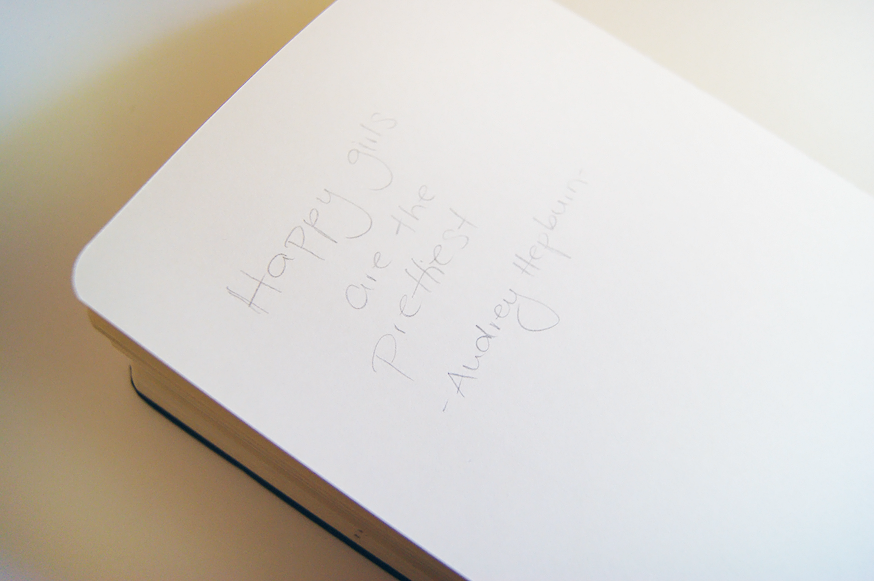 Happy girls
are the
prettiest
-Audrey Hepburn-